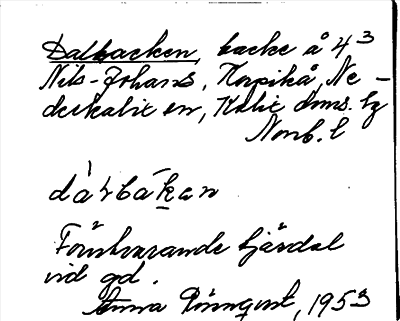 Dalbacken, backe å 4³
Nils-Johans, Korpikå, Ne-
derkalix sn, Kalix doms. lg
Norrb. l
dàrbákan
Försvarande tjärdal
vid gd.
Anna Rönnqvist, 1953